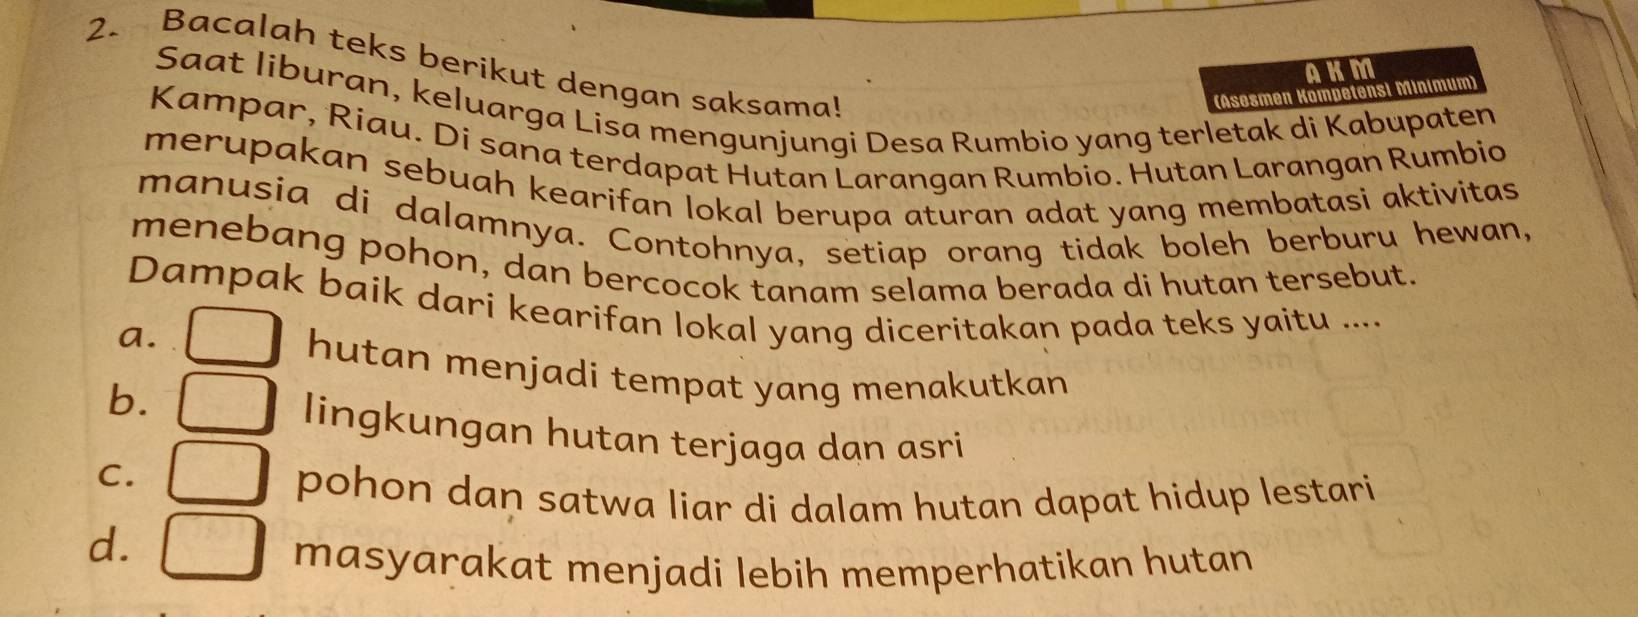 2. Bacalah teks berikut dengan saksama!
AKM
(Asesmen Kompetensi Minimum)
Saat liburan, keluarga Lisa mengunjungi Desa Rumbio yang terletak di Kabupaten
Kampar, Riau. Di sana terdapat Hutan Larangan Rumbio. Hutan Larangan Rumbio
merupakan sebuah kearifan lokal berupa aturan adat yang membatasi aktivitas
manusia di dalamnya. Contohnya, setiap orang tidak boleh berburu hewan,
menebang pohon, dan bercocok tanam selama berada di hutan tersebut.
Dampak baik dari kearifan lokal yang diceritakan pada teks yaitu ....
a. hutan menjadi tempat yang menakutkan
b. lingkungan hutan terjaga dan asri
c. pohon dan satwa liar di dalam hutan dapat hidup lestari
d. masyarakat menjadi lebih memperhatikan hutan